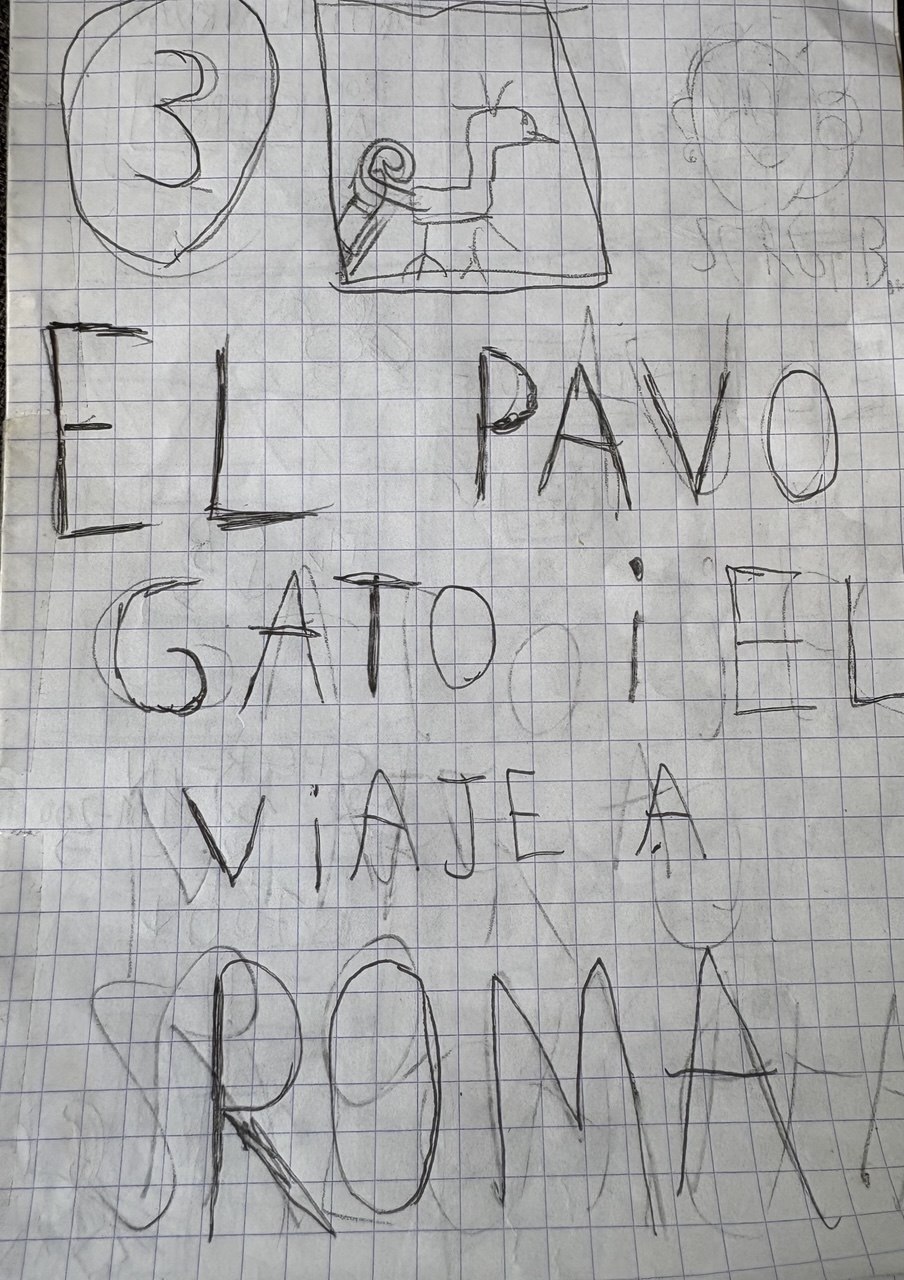 3
EL PAVO
GATO i EL
ViAJE A
ROMA